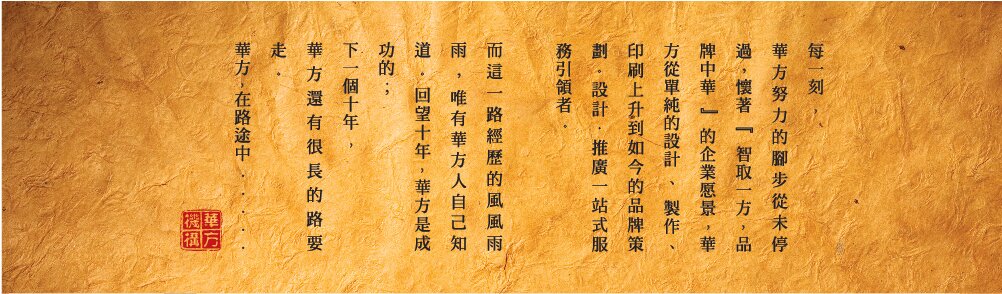 每一刻，
華方努力的腳步從未停
過，懷著『智取一方，品
牌中華』的企業愿景，華
方從單純的設計、製作、
印刷上升到如今的品牌策
劃．設計．推廣一站式服
務引領者．
而這一路經歷的風風雨
雨，唯有華方人自己知
道．回望十年，華方是成
功的；
下一個十年，
華方還有很長的路要
走．
華方，在路途中．．．．
華方
機構